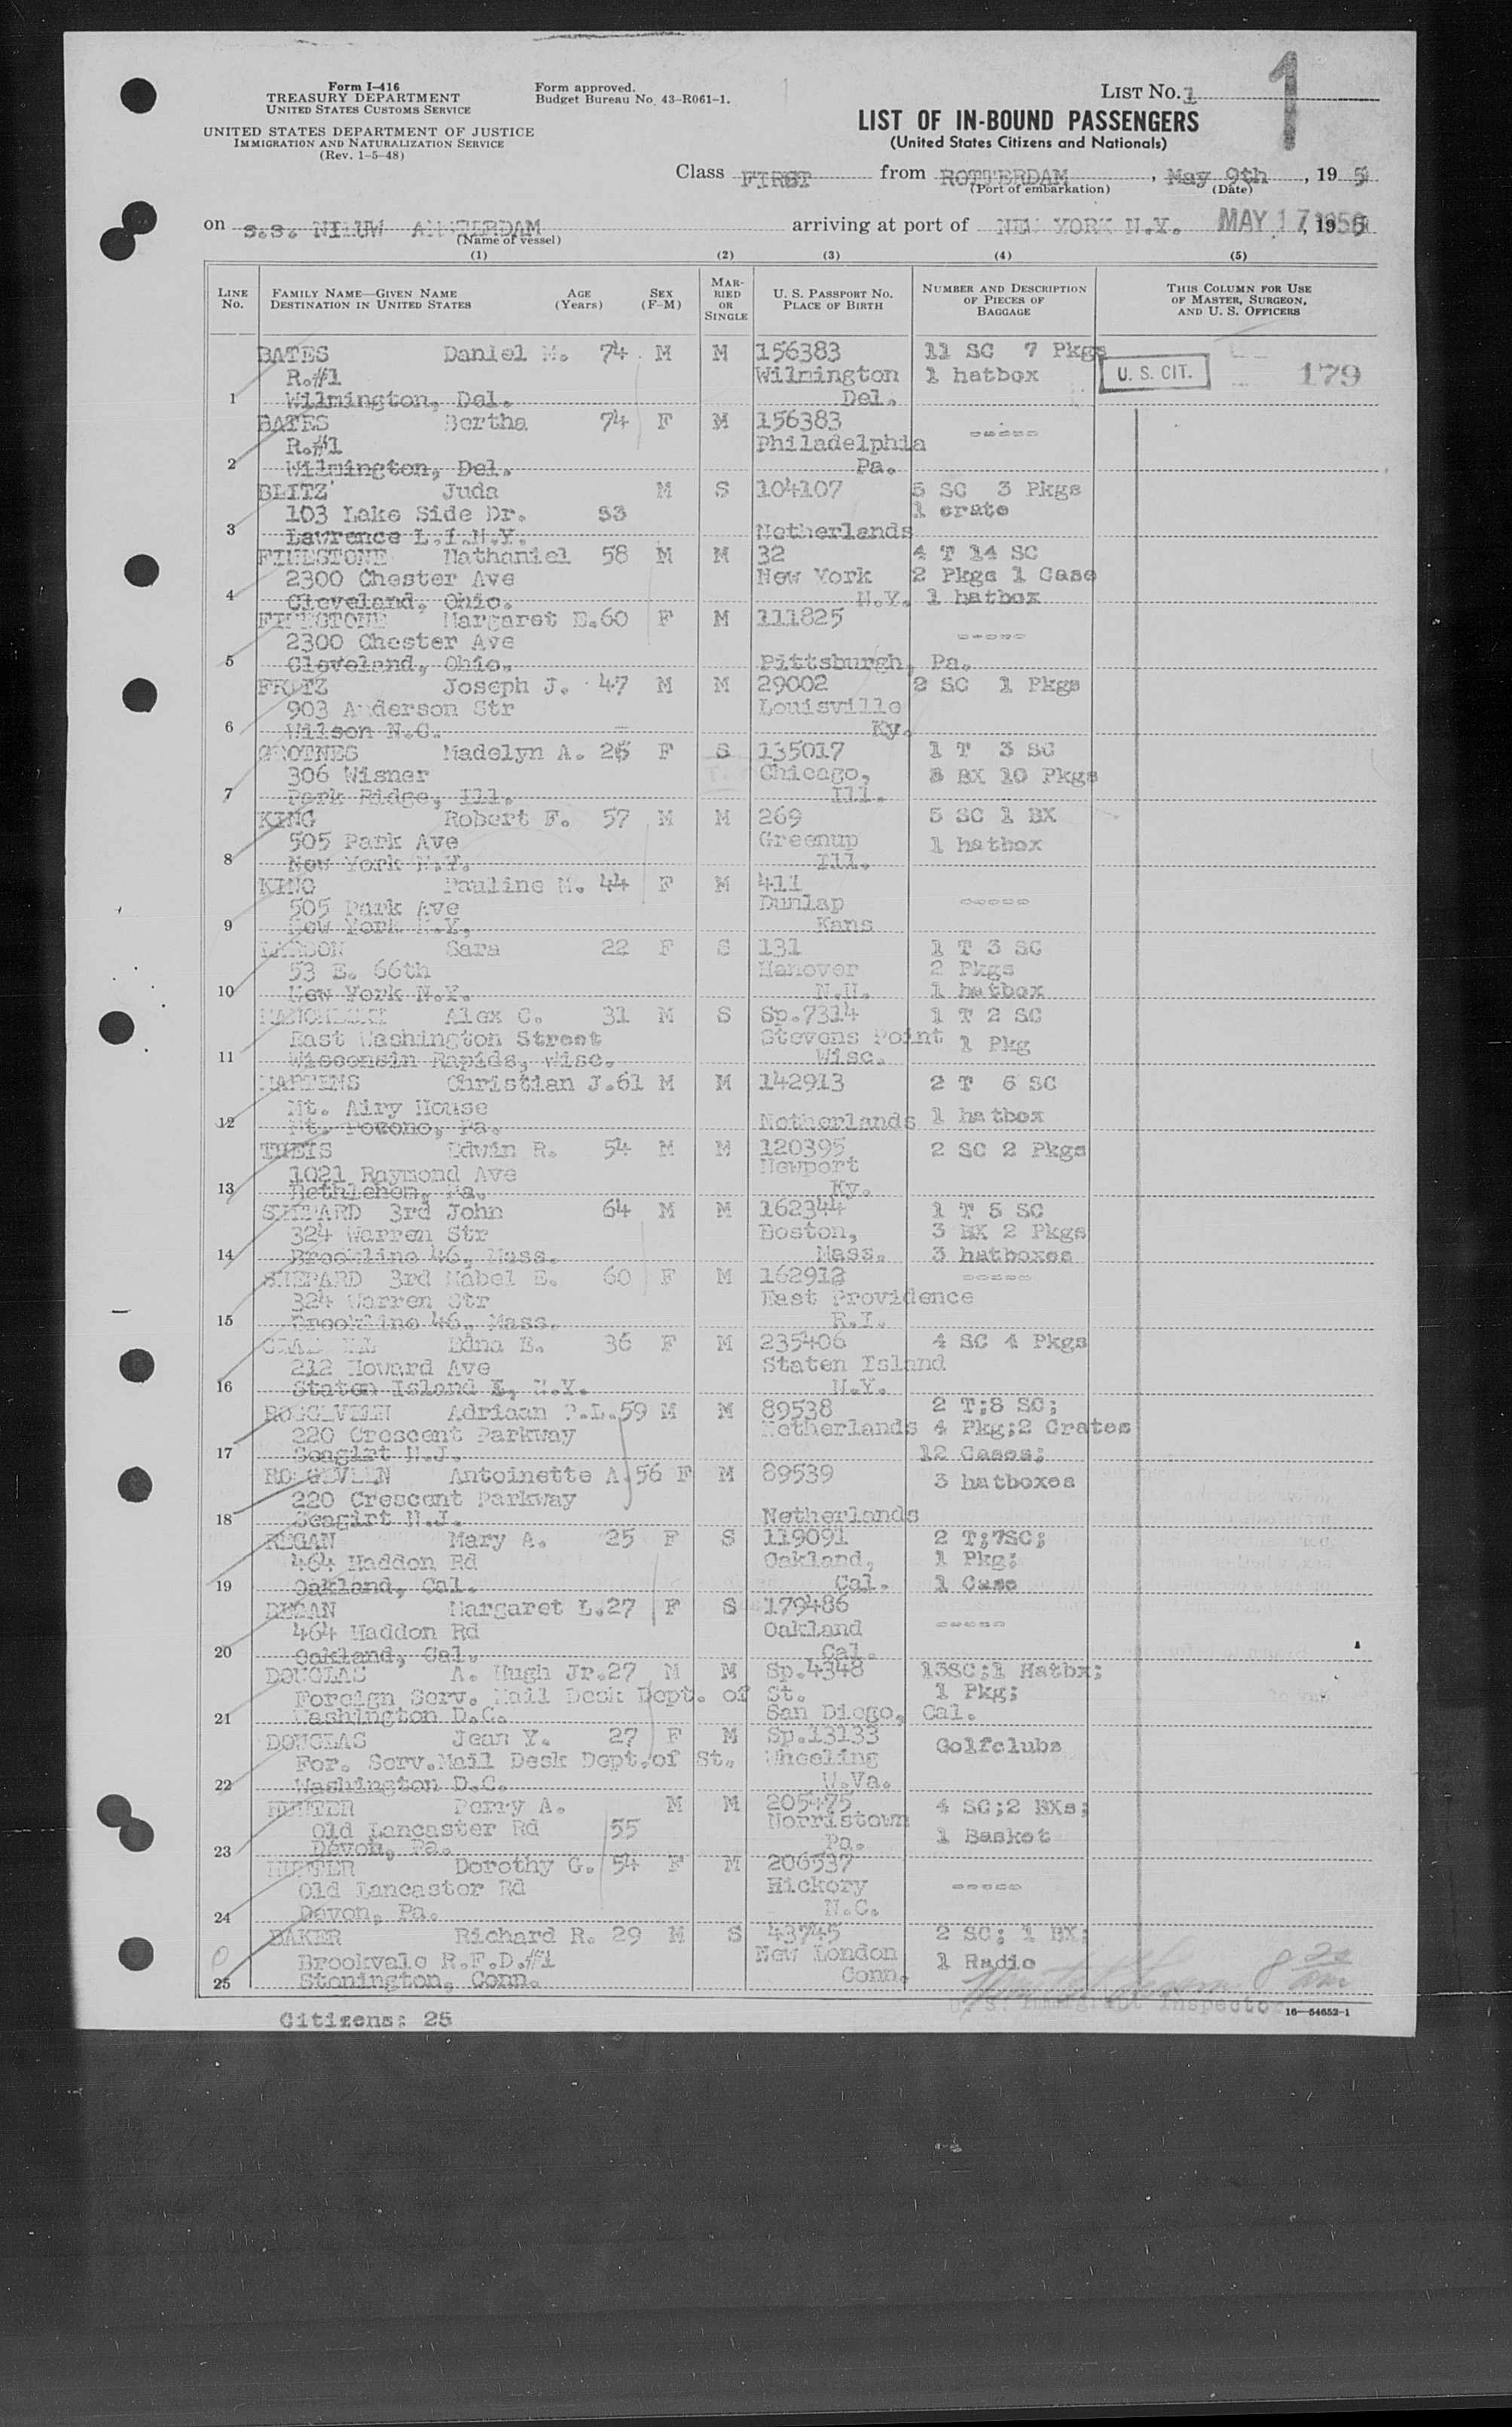 Form I-416
TREASURY DEPARTMENT
UNITED STATES CUSTOMS SERVICE
UNITED STATES DEPARTMENT OF JUSTICE
IMMIGRATION AND NATURALIZATION SERVICE
(Rev. 1-5-48)
Form approved.
Budget Bureau No. 43-R061-1.
LIST No. 1
1
LIST OF IN-BOUND PASSENGERS
(United States Citizens and Nationals)
Class FIRST from ROTTERDAM, May 9th, 195
(Port of embarkation) (Date)
on s.s. NIEUW AMSTERDAM arriving at port of NEW YORK N.Y. MAY 17 195
(Name of vessel)
(1) (2) (3) (4) (5)
LINE No.
FAMILY NAME—GIVEN NAME
DESTINATION IN UNITED STATES
AGE (Years)
SEX (F-M)
MARRIED OR SINGLE
U. S. PASSPORT No.
PLACE OF BIRTH
NUMBER AND DESCRIPTION OF PIECES OF BAGGAGE
THIS COLUMN FOR USE OF MASTER, SURGEON, AND U. S. OFFICERS
BATES Daniel M. 74 M M 156383 11 SC 7 Pkgs
R.#1 Wilmington 1 hatbox U. S. CIT. 179
1 Wilmington, Del. Del.
BATES Bertha 74 F M 156383
R.#1 Philadelphia -----
2 Wilmington, Del. Pa.
BLITZ Juda M S 104107 5 SC 3 Pkgs
103 Lake Side Dr. 53 1 crate
3 Lawrence L.I.N.Y. Netherlands
Nathaniel 58 M M 32 4 T 14 SC
2300 Chester Ave New York 2 Pkgs 1 Case
4 Cleveland, Ohio. N.Y. 1 hatbox
Margaret E. 60 F M 111825
2300 Chester Ave -----
5 Cleveland, Ohio. Pittsburgh, Pa.
FRITZ Joseph J. 47 M M 29002 2 SC 1 Pkgs
903 Anderson Str Louisville
6 Wilson N.C. Ky.
GROTNES Madelyn A. 25 F S 135017 1 T 3 SC
306 Wisner Chicago, BX 10 Pkgs
7 Park Ridge, Ill. Ill.
KING Robert F. 57 M M 269 5 SC 1 BX
505 Park Ave Greenup 1 hatbox
8 New York N.Y. Ill.
KING Pauline M. 44 F M 411
505 Park Ave Dunlap -----
9 New York N.Y. Kans
Sara 22 F S 131 1 T 3 SC
53 E. 66th Hanover 2 Pkgs
10 New York N.Y. N.H. 1 hatbox
Alex C. 31 M S Sp.7314 1 T 2 SC
East Washington Street Stevens Point 1 Pkg
11 Wisconsin Rapids, Wisc. Wisc.
MARTENS Christian J. 61 M M 142913 2 T 6 SC
Mt. Airy House 1 hatbox
12 Mt. Pocono, Pa. Netherlands
THEIS Edwin R. 54 M M 120395 2 SC 2 Pkgs
1021 Raymond Ave Newport
13 Bethlehem, Pa. Ky.
SHEPARD 3rd John 64 M M 162344 1 T 5 SC
324 Warren Str Boston, 3 BX 2 Pkgs
14 Brookline 46, Mass. Mass. 3 hatboxes
SHEPARD 3rd Mabel E. 60 F M 162912 -----
324 Warren Str East Providence
15 Brookline 46, Mass. R.I.
Edna E. 36 F M 235406 4 SC 4 Pkgs
212 Howard Ave Staten Island
16 Staten Island N.Y. N.Y.
ROGGEVEEN Adriaan P.L. 59 M M 89538 2 T;8 SC;
220 Crescent Parkway Netherlands 4 Pkg;2 Crates
17 Seagirt N.J. 12 Cases;
ROGGEVEEN Antoinette A. 56 F M 89539 3 hatboxes
220 Crescent Parkway
18 Seagirt N.J. Netherlands
REGAN Mary A. 25 F S 119091 2 T;7SC;
464 Haddon Rd Oakland, 1 Pkg;
19 Oakland, Cal. Cal. 1 Case
REGAN Margaret L. 27 F S 179486
464 Haddon Rd Oakland -----
20 Oakland, Cal. Cal.
DOUGLAS A. Hugh Jr. 27 M M Sp.4348 13SC;1 Hatbx;
Foreign Serv. Mail Desk Dept. of St. 1 Pkg;
21 Washington D.C. San Diego, Cal.
DOUGLAS Jean Y. 27 F M Sp.13133 Golfclubs
For. Serv.Mail Desk Dept.of St. Wheeling
22 Washington D.C. W.Va.
HUNTER Perry A. M M 205475 4 SC;2 BXs;
Old Lancaster Rd 55 Norristown 1 Basket
23 Devon, Pa. Pa.
HUNTER Dorothy G. 54 F M 206537
Old Lancaster Rd Hickory -----
24 Devon, Pa. N.C.
BAKER Richard R. 29 M S 43745 2 SC; 1 BX;
Brookvale R.F.D.#1 New London 1 Radio
25 Stonington, Conn. Conn.
8 20 am
U.S. Immigrant Inspector
16—54652-1
Citizens: 25